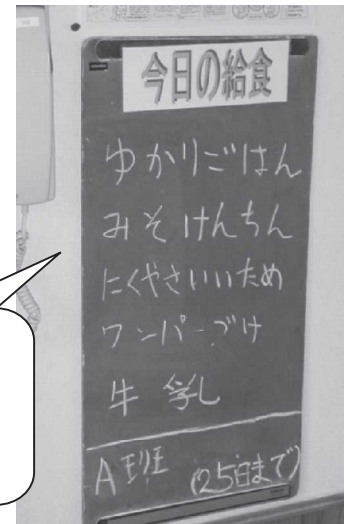 今日の給食
ゆかりごはん
みそけんちん
にくやさいいため
ワンパーづけ
牛乳
A班 (25日まで)